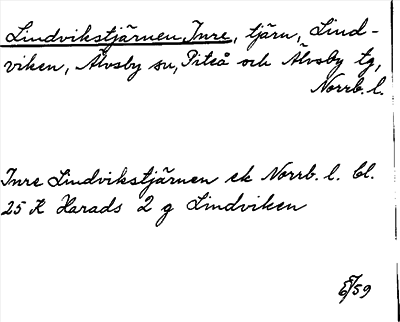 Lindvikstjärnen, Inre, tjärn, Lind-
viken, Älvsby sn, Piteå och Älvsby tg,
Norrb. l.
Inre Lindvikstjärnen ek Norrb. l. bl.
25 K Harads 2 g Lindviken
/59